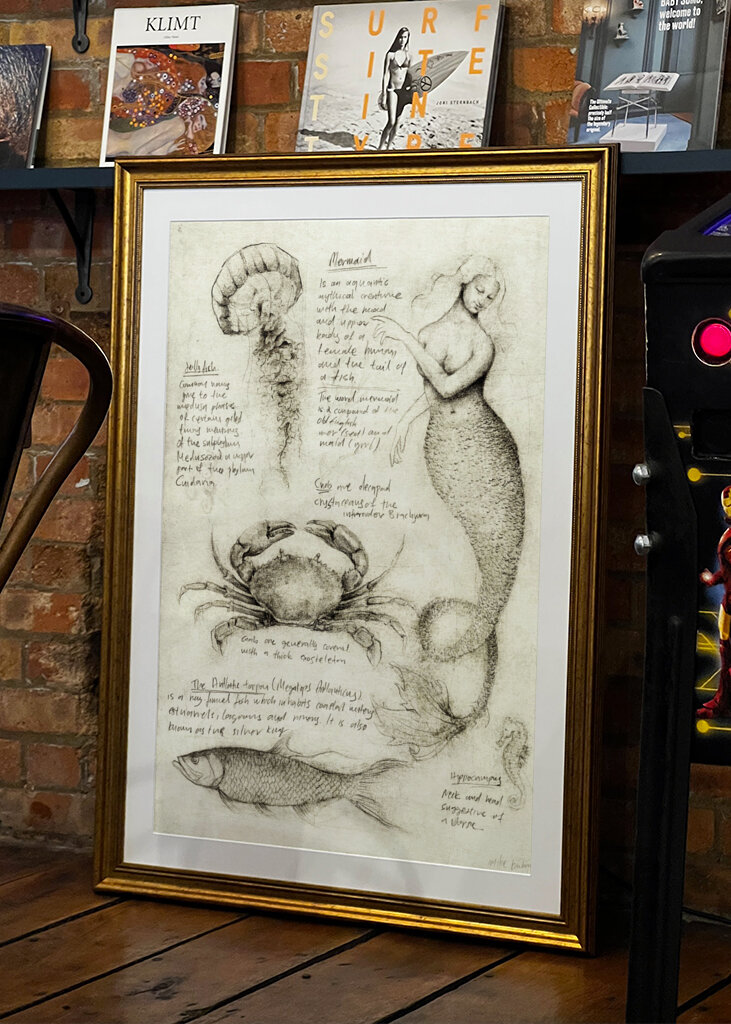 KLIMT
SURF
SITE
IN
TYPE
JONI STERNBACH
BABY SUMO,
welcome to
the world!
The Ultimate
Collectible:
precisely half
the size of
the legendary
original.
Mermaid
Is an aquatic
mythical creature
with the head
and upper
body of a
female human
and the tail of
a fish
The word mermaid
is a compound of the
Old English
mer (sea) and
maid (girl)
Jellyfish
Common
to the
medusa
of certain
of the subphylum
Medusozoa a major
part of the phylum
Cnidaria
Crabs are decapod
crustaceans of the
infraorder Brachyura
Crabs are generally covered
with a thick exoskeleton
The Atlantic tarpon (Megalops Atlanticus)
is a ray finned fish which inhabits coastal waters
estuaries, lagoons and rivers. It is also
known as the silver king
Hippocampus
Neck and head
suggestive of
a